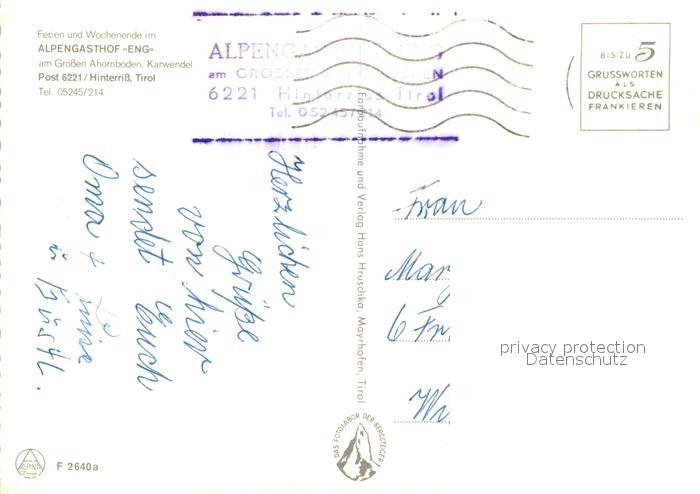 Ferien und Wochenende im
ALPENGASTHOF »ENG«
am Großen Ahornboden, Karwendel
Post 6221 / Hinterriß, Tirol
Tel. 05245/214
ALPENG
am GROSS
6221 Hinterriss, Tirol
Tel. 0 52 45/214
BIS ZU 5
GRUSSWORTEN
ALS
DRUCKSACHE
FRANKIEREN
Herzlichen
Grüße
von hier
sendet Euch
Oma +
u
Farbaufnahme und Verlag Hans Hruschka, Mayrhofen, Tirol
Frau
Mar
6 Fr
Wi
privacy protection
Datenschutz
DAS FOTOLABOR DER BERGSTEIGER
ALPINA
F 2640a